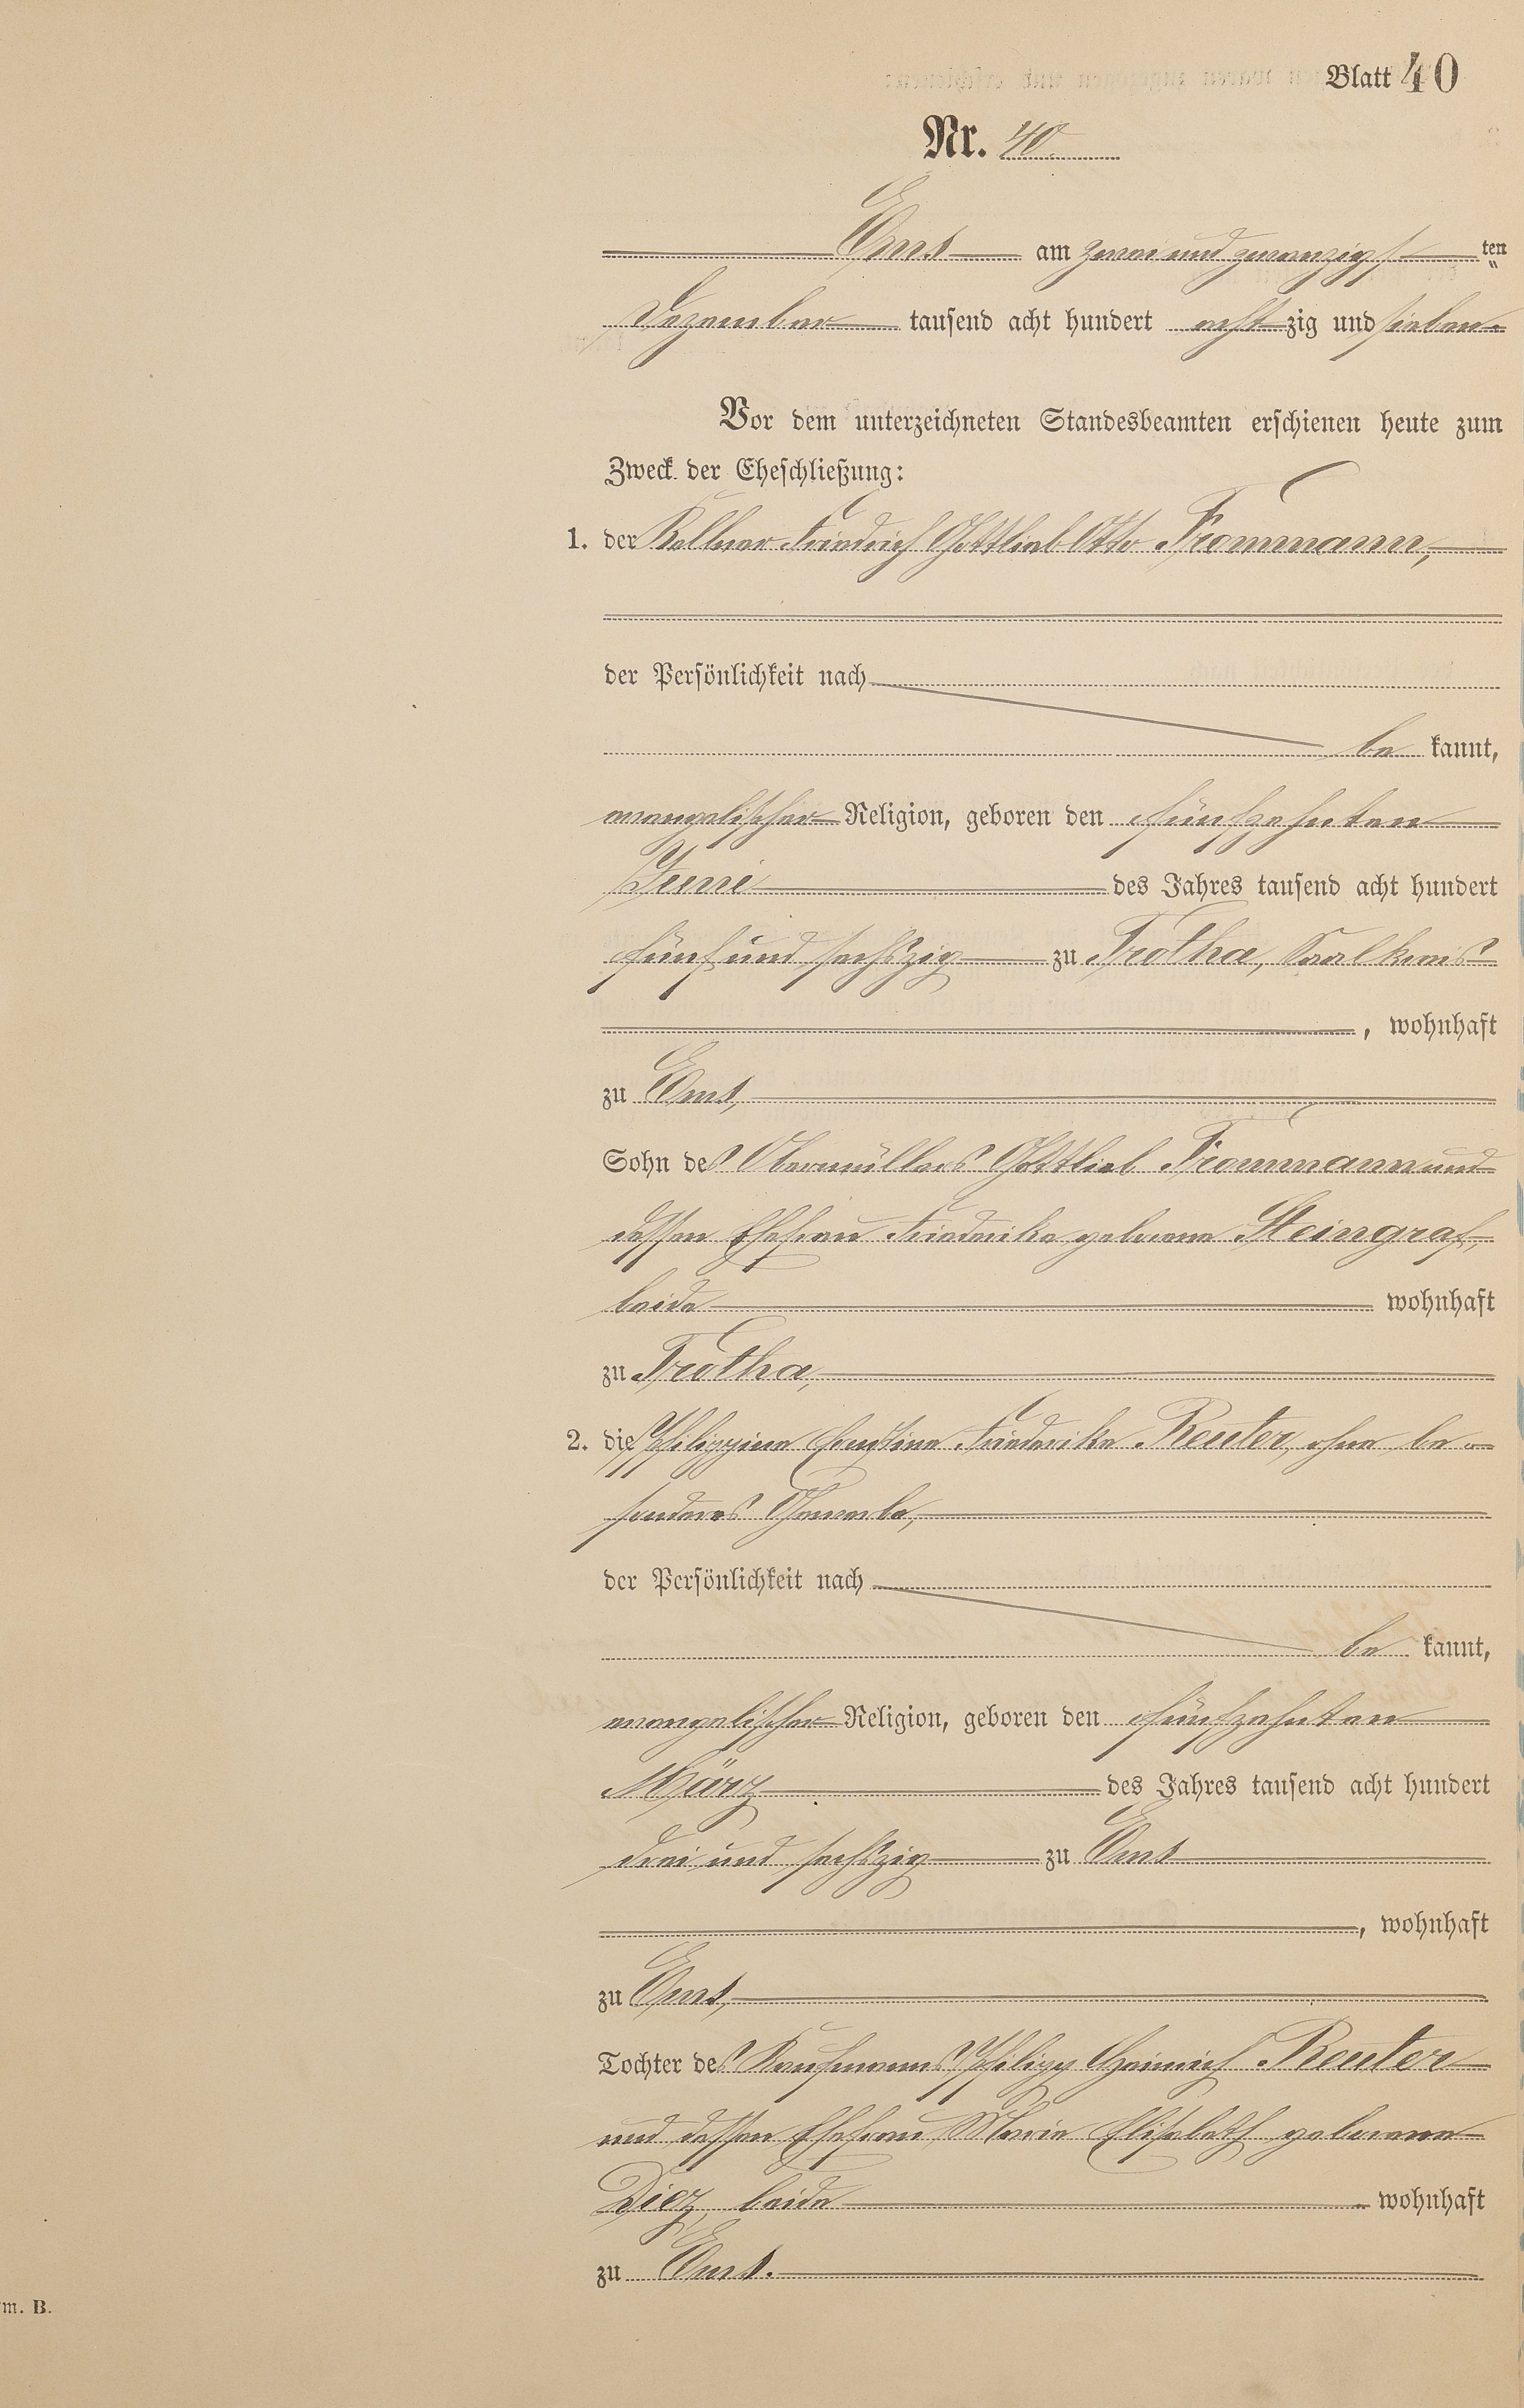 Blatt 40
Nr. 40.
Ems am zwei und zwanzigsten
Dezember tausend acht hundert achtzig und sieben.
Vor dem unterzeichneten Standesbeamten erschienen heute zum
Zweck der Eheschließung:
1. der Kellner Friedrich Gottlieb Otto Frommann,
der Persönlichkeit nach
be kannt,
evangelischer Religion, geboren den fünfzehnten
Juni des Jahres tausend acht hundert
fünf und sechszig zu Trotha, Saalkreis
, wohnhaft
zu Ems,
Sohn des Obermüllers Gottlieb Frommann und
dessen Ehefrau Friederike geborene Steingraf,
beide wohnhaft
zu Trotha,
2. die Philippine Ernstine Friederike Reuter, ohne be-
sonderes Gewerbe,
der Persönlichkeit nach
be kannt,
evangelischer Religion, geboren den fünfzehnten
März des Jahres tausend acht hundert
drei und sechszig zu Ems
, wohnhaft
zu Ems,
Tochter des Kaufmanns Philipp Heinrich Reuter
und dessen Ehefrau Marie Elisabeth geborene
Diez, beide wohnhaft
zu Ems.
m. B.